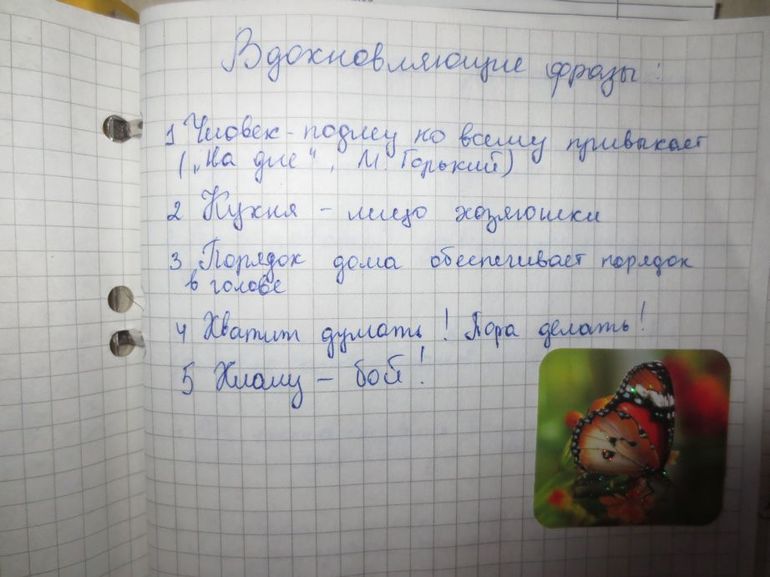 Вдохновляющие фразы:
1 Человек - подлец ко всему привыкает
(„На дне", М. Горький)
2 Кухня - лицо хозяюшки
3 Порядок дома обеспечивает порядок
в голове
4 Хватит думать! Пора делать!
5 Хламу - бой!